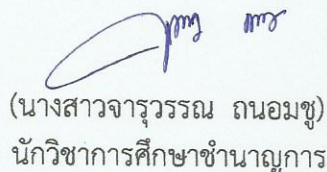 (นางสาวจารุวรรณ ถนอมชู)
นักวิชาการศึกษาชำนาญการ